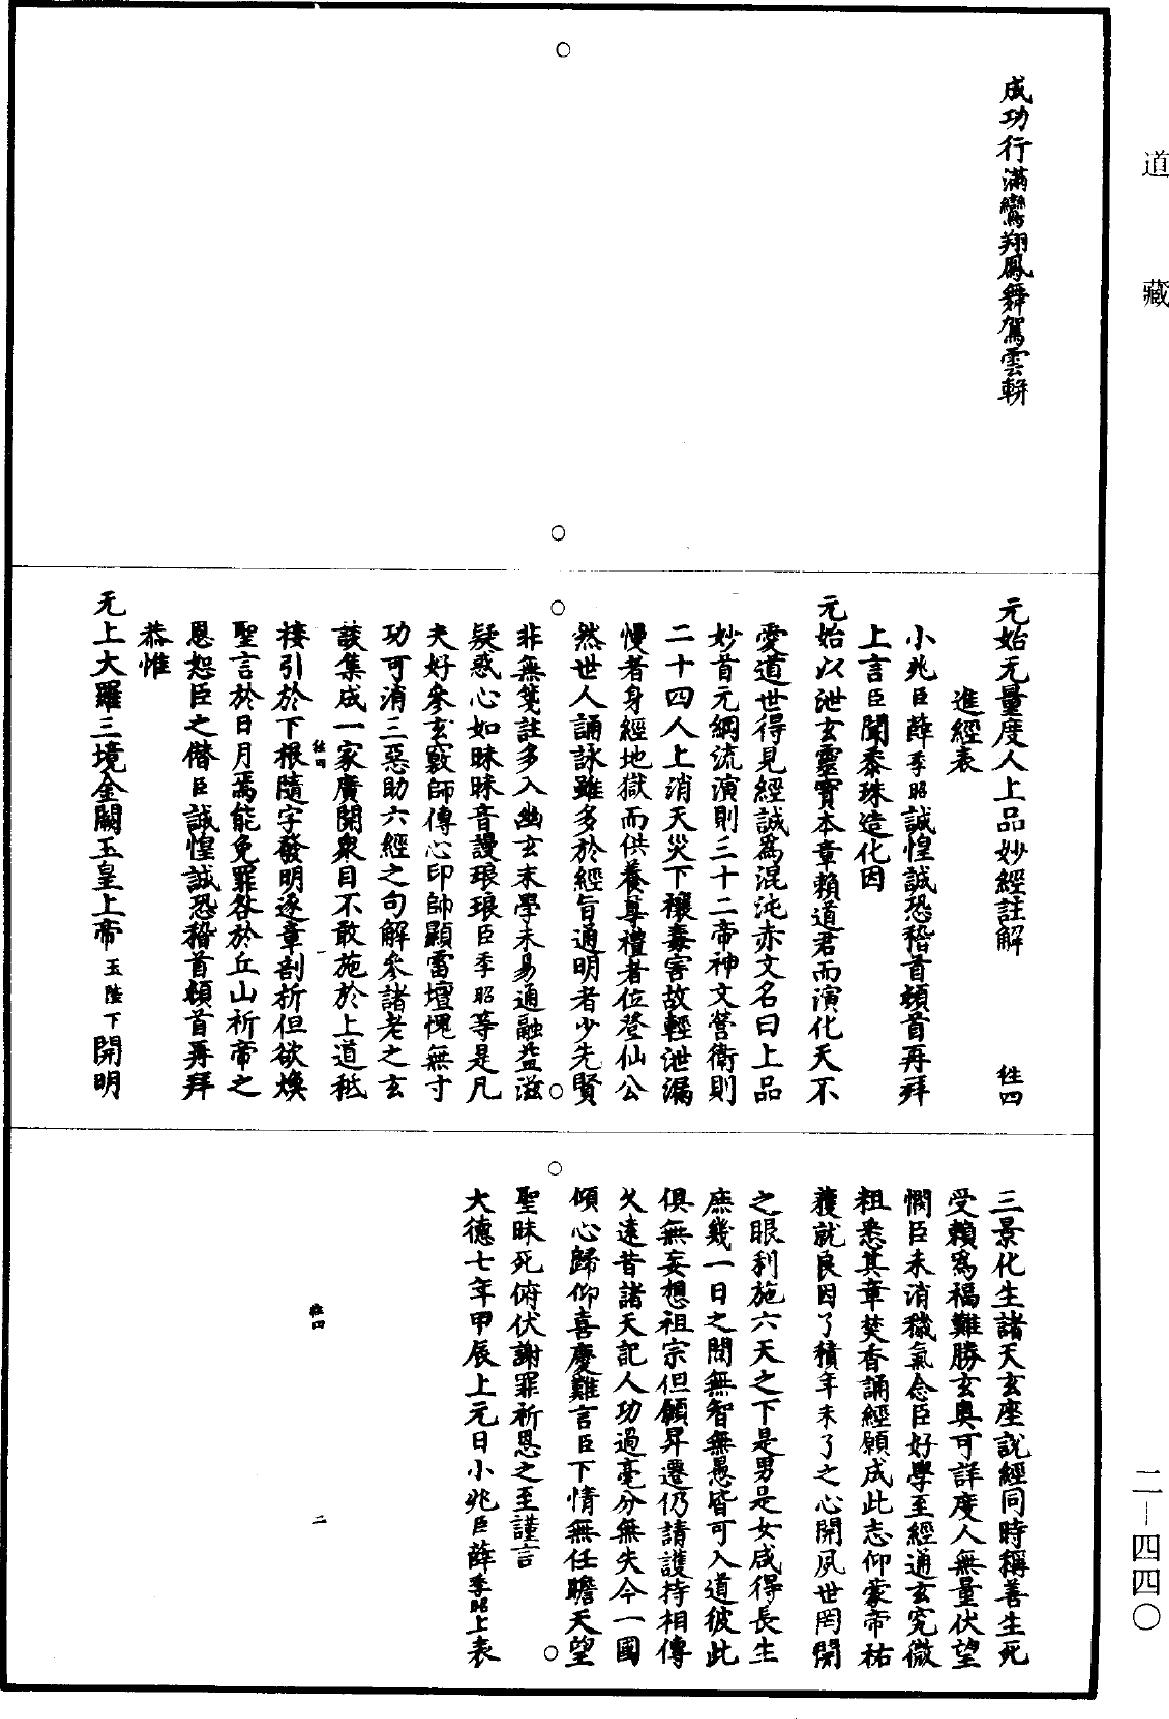 道藏
成功行滿鸞翔鳳舞駕雲軿
元始无量度人上品妙經註解 牲四
進經表
小兆臣薛季昭誠惶誠恐稽首頓首再拜
上言臣聞黍珠造化因
元始以泄玄靈寶本章賴道君而演化天不
愛道世得見經誠為混沌赤文名曰上品
妙首元綱流演則三十二帝神文營衛則
二十四人上消天災下禳毒害故輕泄漏
慢者身經地獄而供養尊禮者位登仙公
然世人誦詠雖多於經旨通明者少先賢
非無箋註多入幽玄末學未易通融益滋
疑惑心如昧昧音謾琅琅臣季昭等是凡
夫好參玄竅師傳心印帥顯雷壇愧無寸
功可消三惡助六經之句解參諸老之玄
談集成一家廣開衆目不敢施於上道秪
牲四 一
接引於下根隨字發明逐章剖析但欲煥
聖言於日月焉能免罪咎於丘山祈帝之
恩恕臣之僭臣誠惶誠恐稽首頓首再拜
恭惟
无上大羅三境金闕玉皇上帝玉陛下開明
三景化生諸天玄座說經同時稱善生死
受賴為福難勝玄奥可詳度人無量伏望
憫臣未消穢氣念臣好學至經通玄究微
粗悉其章焚香誦經願成此志仰蒙帝祐
獲就良因了積年未了之心開夙世罔開
之眼利施六天之下是男是女咸得長生
庶幾一日之間無智無愚皆可入道彼此
俱無妄想祖宗但願昇遷仍請護持相傳
久遠昔諸天記人功過毫分無失今一國
傾心歸仰喜慶難言臣下情無任瞻天望
聖昧死俯伏謝罪祈恩之至謹言
大德七年甲辰上元日小兆臣薛季昭上表
牲四 二
二—四四〇